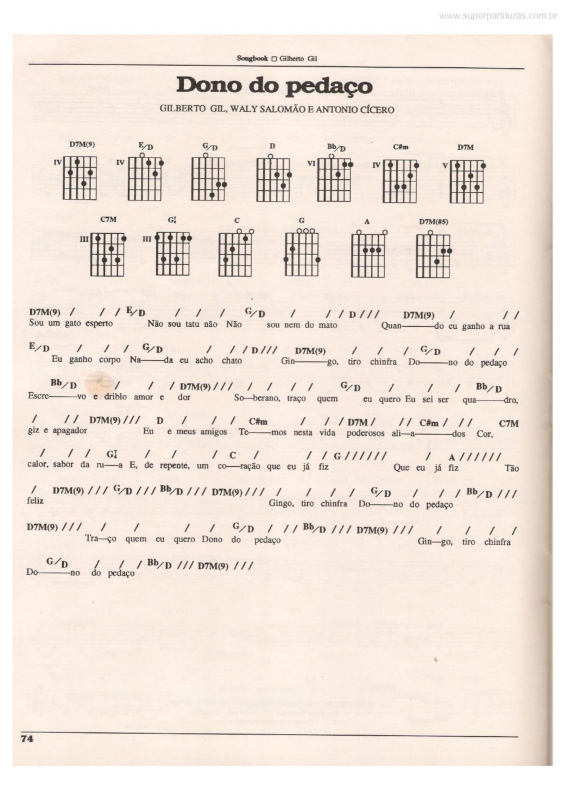 www.superpartituras.com.br
Songbook □ Gilberto Gil
Dono do pedaço
GILBERTO GIL, WALY SALOMÃO E ANTONIO CÍCERO
D7M(9) E/D G/D D Bb/D C#m D7M
IV IV VI IV V
C7M C G A D7M(#5)
III III
D7M(9) / / / E/D / / / G/D / / / D /// D7M(9) / / /
Sou um gato esperto Não sou tatu não Não sou nem do mato Quan———do eu ganho a rua
E/D / / / G/D / / / D /// D7M(9) / / / G/D / / /
Eu ganho corpo Na——da eu acho chato Gin———go, tiro chinfra Do———no do pedaço
Bb/D / / / D7M(9) /// / / / / G/D / / / Bb/D
Escre———vo e driblo amor e dor So—berano, traço quem eu quero Eu sei ser qua———dro,
/ / / D7M(9) /// D / / / C#m / / / D7M / / / C#m / / / C7M
giz e apagador Eu e meus amigos Te——mos nesta vida poderosos ali—a———dos Cor,
/ / / / / / C / / / G /////// / A //////
calor, sabor da ru——a E, de repente, um co——ração que eu já fiz Que eu já fiz Tão
/ D7M(9) /// G/D /// Bb/D /// D7M(9) /// / / / / G/D / / / Bb/D ///
feliz Gingo, tiro chinfra Do———no do pedaço
D7M(9) /// / / / / G/D / / / Bb/D /// D7M(9) /// / / / /
Tra—ço quem eu quero Dono do pedaço Gin—go, tiro chinfra
G/D / / / Bb/D /// D7M(9) ///
Do———no do pedaço
74